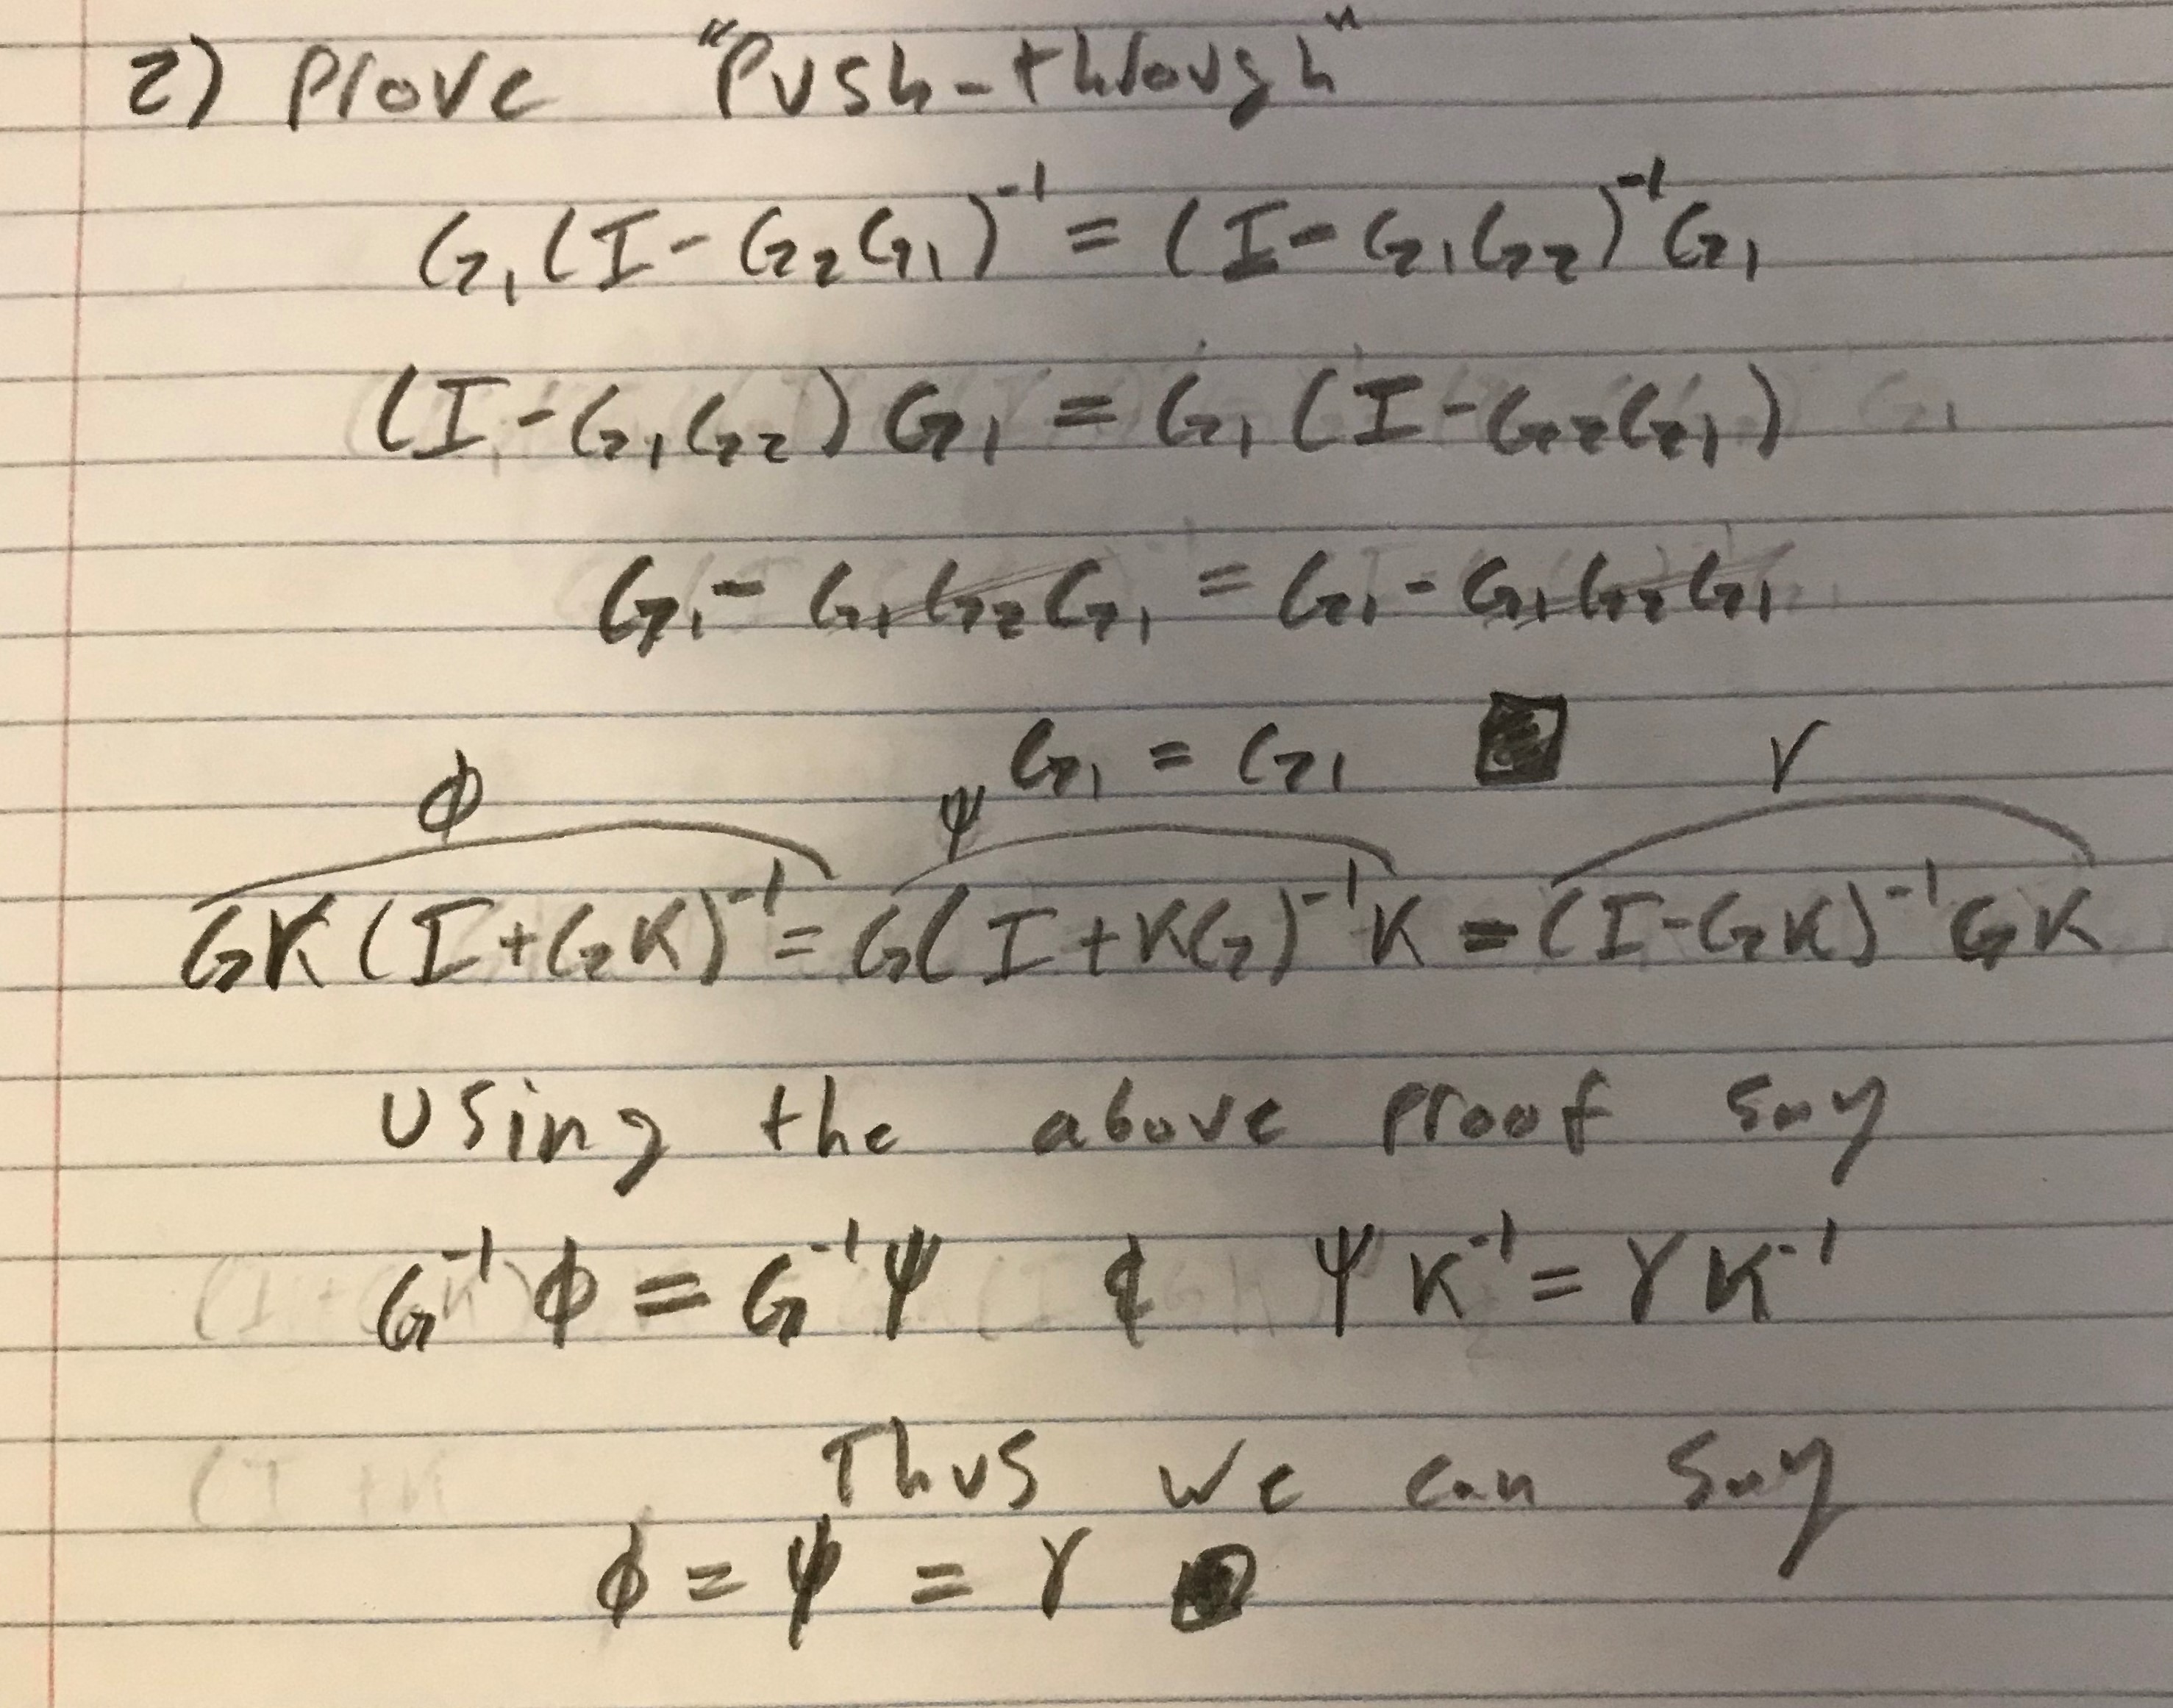 2) Prove "Push-through"
G₁(I-G₂G₁)⁻¹ = (I-G₁G₂)⁻¹G₁
(I-G₁G₂)G₁ = G₁(I-G₂G₁)
G₁ - G₁G₂G₁ = G₁ - G₁G₂G₁
G₁ = G₁ ■
ϕ ψ γ
GK(I+GK)⁻¹ = G(I+KG)⁻¹K = (I-GK)⁻¹GK
Using the above proof say
G⁻¹ϕ = G⁻¹ψ & ψK⁻¹ = γK⁻¹
Thus we can say
ϕ = ψ = γ ■